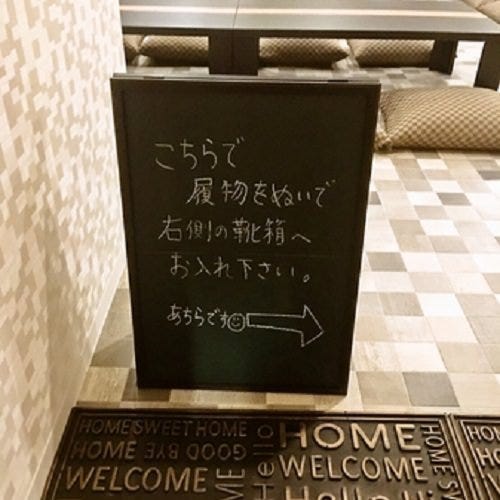 こちらで
履物をぬいで
右側の靴箱へ
お入れ下さい。
あちらです
HOME SWEET HOME
GOOD BYE
HOME
WELCOME
Hello
HOME
WELCOME
HOME
HOME